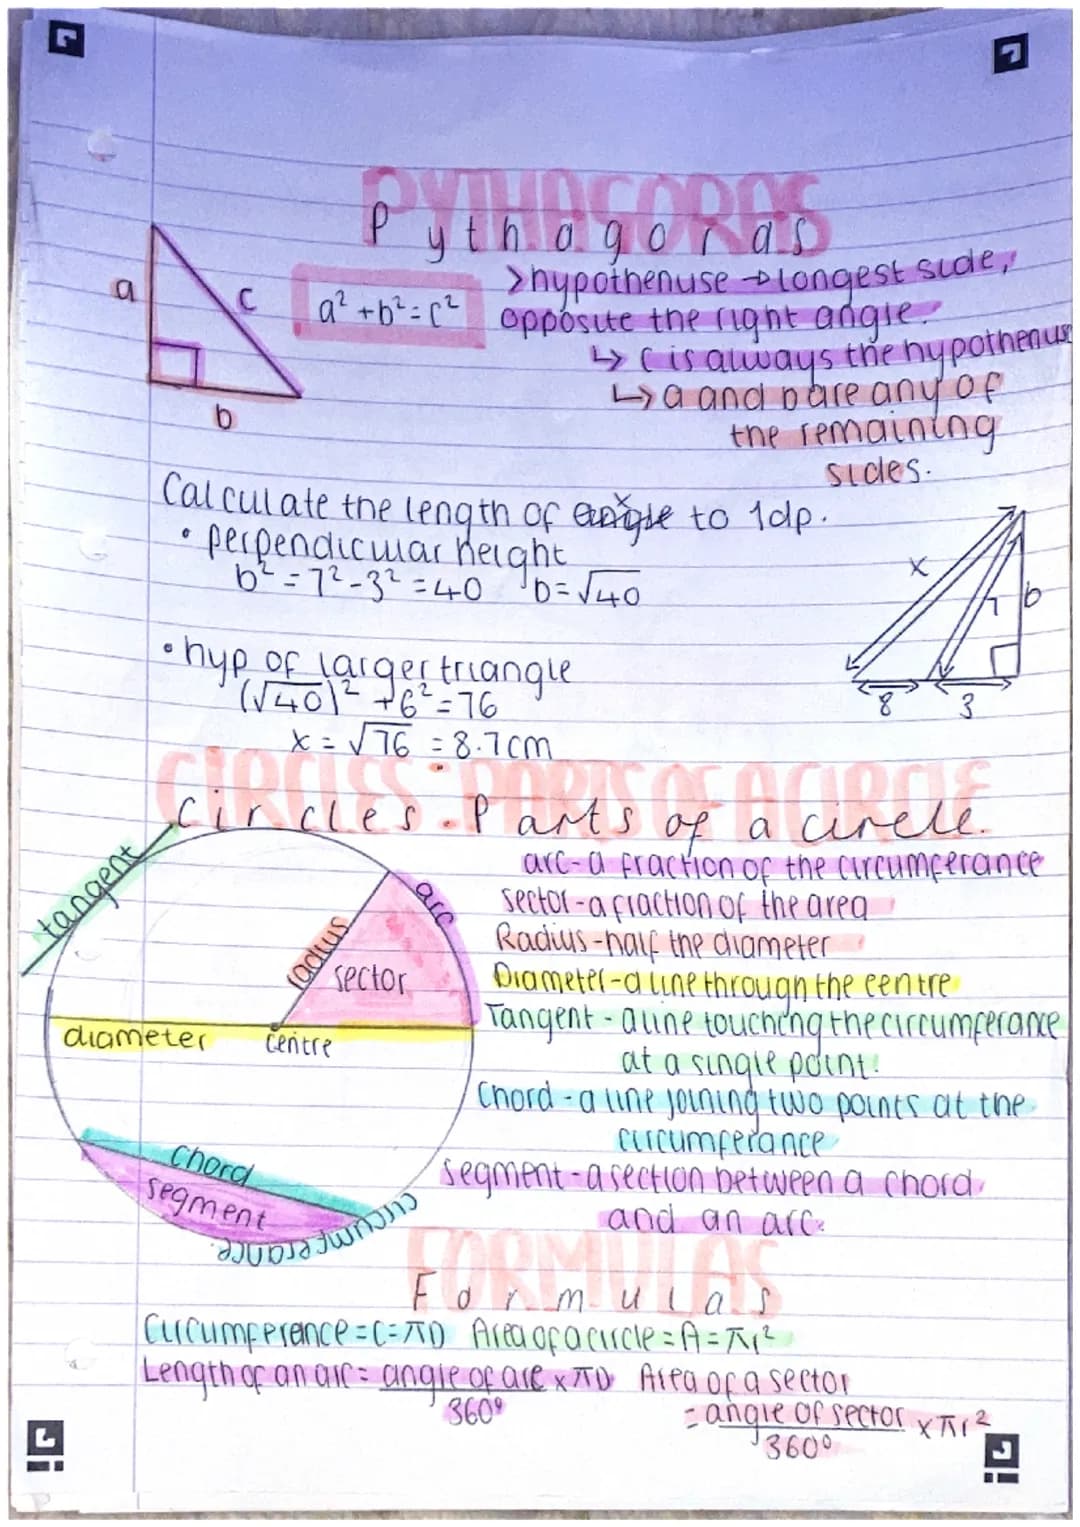 PYTHAGORAS
Pythagoras
a
c
b
a² + b² = c²
>hypothenuse → longest side,
opposite the right angle.
↳ C is always the hypothenuse
↳ a and b are any of
the remaining
sides.
Calculate the length of x to 1dp.
• perpendicular height
b² = 7² - 3² = 40 b = √40
x
7
b
8
3
• hyp of larger triangle
(√40)² + 6² = 76
x = √76 = 8.7cm
CIRCLES: PARTS OF A CIRCLE
Circles: Parts of a circle.
tangent
arc
radius
sector
diameter
centre
chord
segment
circumferance
arc - a fraction of the circumferance
sector - a fraction of the area
Radius - half the diameter
Diameter - a line through the centre
Tangent - a line touching the circumferance
at a single point.
Chord - a line joining two points at the
circumferance
segment - a section between a chord
and an arc.
FORMULAS
Formulas
Circumference = C = πD Area of a circle = A = πr²
Length of an arc = angle of arc x πD Area of a sector
360°
= angle of sector x πr²
360°